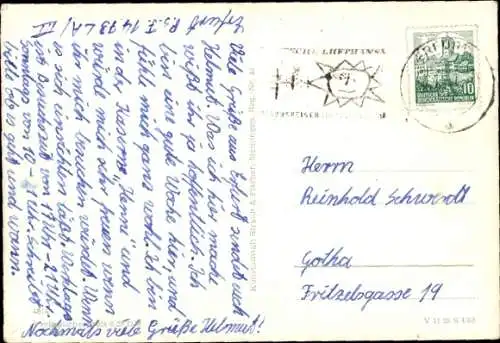 Erfurt P.S.F 1473 LA/III
Viele Grüße aus Erfurt sendet euch
Helmut. Was ich hier mache
wißt ihr ja hoffentlich. Ich
bin eine gute Ware hier, und
fühle mich ganz wohl. Ich bin
in der Kaserne Henne und
würde mich sehr freuen wenn
ihr mich besuchen würdet. Wenn
es sich einrichten läßt. Werktags
ist Besuchszeit von 17 Uhr - 21 Uhr
Sonntags von 10 - Uhr. Schreibt
bitte ob es geht und wann.
Nochmals viele Grüße Helmut!
DEUTSCHE LUFTHANSA
10
Herrn
Reinhold Schwerdt
Gotha
Fritzelsgasse 19